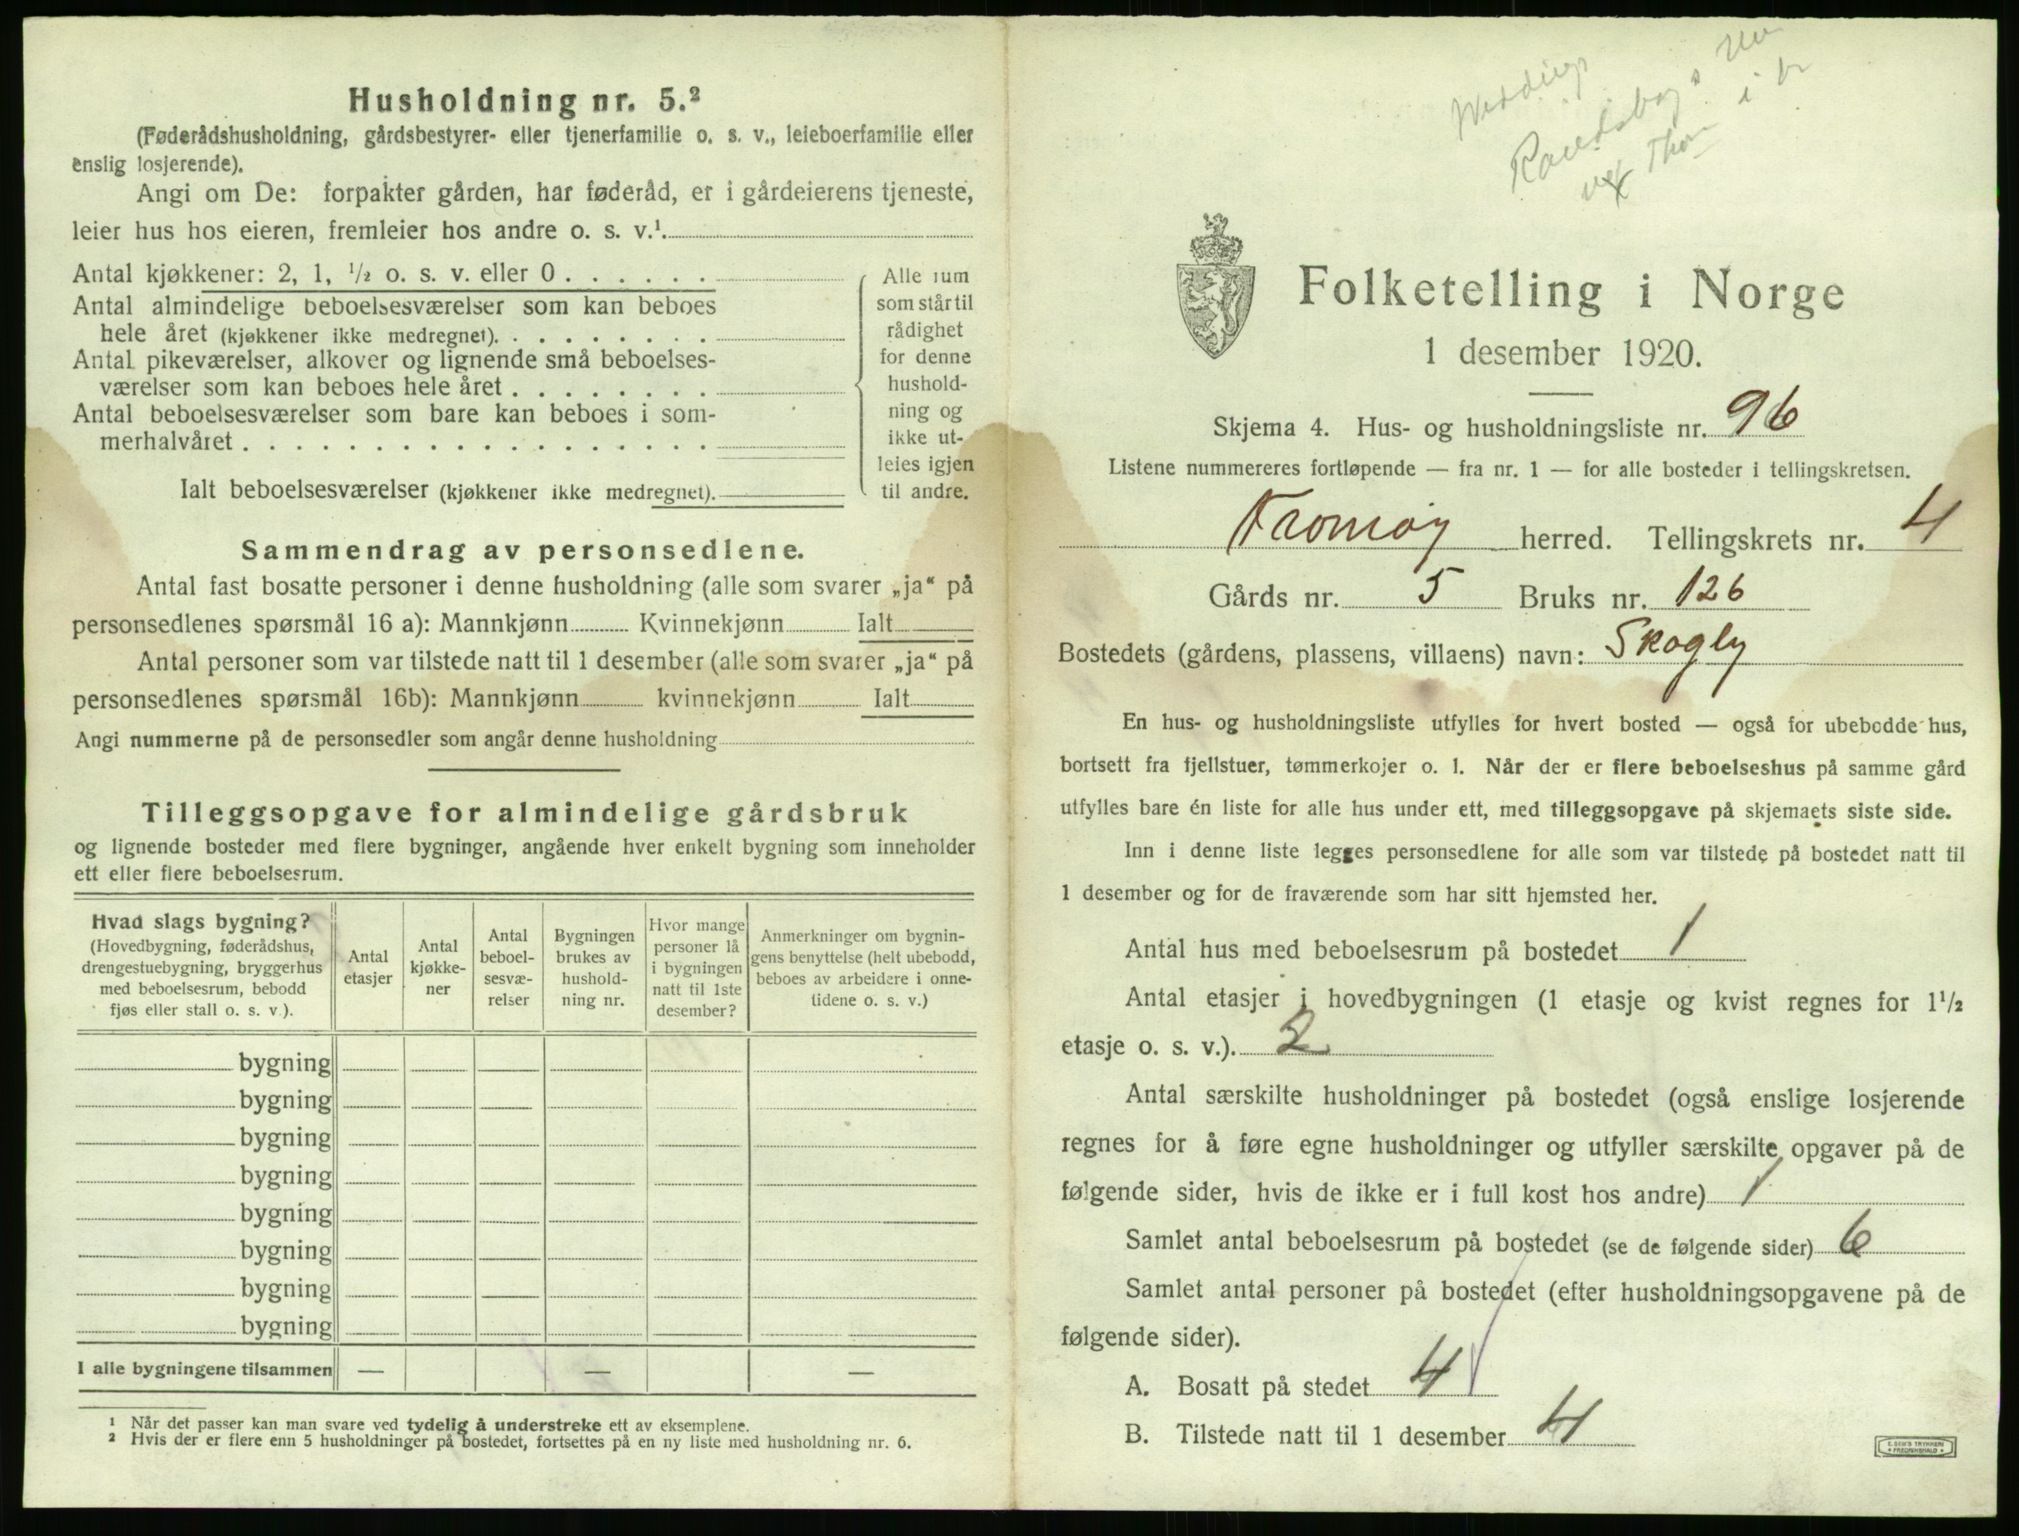 Husholdning nr. 5.²
(Føderådshusholdning, gårdsbestyrer- eller tjenerfamilie o. s. v., leieboerfamilie eller
enslig losjerende).
Angi om De: forpakter gården, har føderåd, er i gårdeierens tjeneste,
leier hus hos eieren, fremleier hos andre o. s. v.¹.
Antal kjøkkener: 2, 1, ½ o. s. v. eller 0 . . . . . .
Antal almindelige beboelsesværelser som kan beboes
hele året (kjøkkener ikke medregnet). . . . . . . . .
Antal pikeværelser, alkover og lignende små beboelses-
værelser som kan beboes hele året . . . . . . . .
Antal beboelsesværelser som bare kan beboes i som-
merhalvåret . . . . . . . . . . . . . . . . . .
Ialt beboelsesværelser (kjøkkener ikke medregnet).
Alle rum
som står til
rådighet
for denne
hushold-
ning og
ikke ut-
leies igjen
til andre.
Sammendrag av personsedlene.
Antal fast bosatte personer i denne husholdning (alle som svarer „ja“ på
personsedlenes spørsmål 16 a): Mannkjønn Kvinnekjønn Ialt
Antal personer som var tilstede natt til 1 desember (alle som svarer „ja“ på
personsedlenes spørsmål 16b): Mannkjønn kvinnekjønn Ialt
Angi nummerne på de personsedler som angår denne husholdning
Tilleggsopgave for almindelige gårdsbruk
og lignende bosteder med flere bygninger, angående hver enkelt bygning som inneholder
ett eller flere beboelsesrum.
Hvad slags bygning?
(Hovedbygning, føderådshus,
drengestuebygning, bryggerhus
med beboelsesrum, bebodd
fjøs eller stall o. s. v.).
Antal
etasjer
Antal
kjøkke-
ner
Antal
beboel-
sesvæ-
relser
Bygningen
brukes av
hushold-
ning nr.
Hvor mange
personer lå
i bygningen
natt til 1ste
desember?
Anmerkninger om bygnin-
gens benyttelse (helt ubebodd,
beboes av arbeidere i onne-
tidene o. s. v.)
bygning
bygning
bygning
bygning
bygning
bygning
bygning
bygning
I alle bygningene tilsammen — — —
¹ Når det passer kan man svare ved tydelig å understreke ett av eksemplene.
² Hvis der er flere enn 5 husholdninger på bostedet, fortsettes på en ny liste med husholdning nr. 6.
Folketelling i Norge
1 desember 1920.
Skjema 4. Hus- og husholdningsliste nr. 96
Listene nummereres fortløpende — fra nr. 1 — for alle bosteder i tellingskretsen.
Tromøy herred. Tellingskrets nr. 4
Gårds nr. 5 Bruks nr. 126
Bostedets (gårdens, plassens, villaens) navn: Skogly
En hus- og husholdningsliste utfylles for hvert bosted — også for ubebodde hus,
bortsett fra fjellstuer, tømmerkojer o. l. Når der er flere beboelseshus på samme gård
utfylles bare én liste for alle hus under ett, med tilleggsopgave på skjemaets siste side.
Inn i denne liste legges personsedlene for alle som var tilstede på bostedet natt til
1 desember og for de fraværende som har sitt hjemsted her.
Antal hus med beboelsesrum på bostedet 1
Antal etasjer i hovedbygningen (1 etasje og kvist regnes for 1½
etasje o. s. v.). 2
Antal særskilte husholdninger på bostedet (også enslige losjerende
regnes for å føre egne husholdninger og utfyller særskilte opgaver på de
følgende sider, hvis de ikke er i full kost hos andre) 1
Samlet antal beboelsesrum på bostedet (se de følgende sider) 6
Samlet antal personer på bostedet (efter husholdningsopgavene på de
følgende sider).
A. Bosatt på stedet 4
B. Tilstede natt til 1 desember 4
E. SEM'S TRYKKERI
FREDRIKSHALD